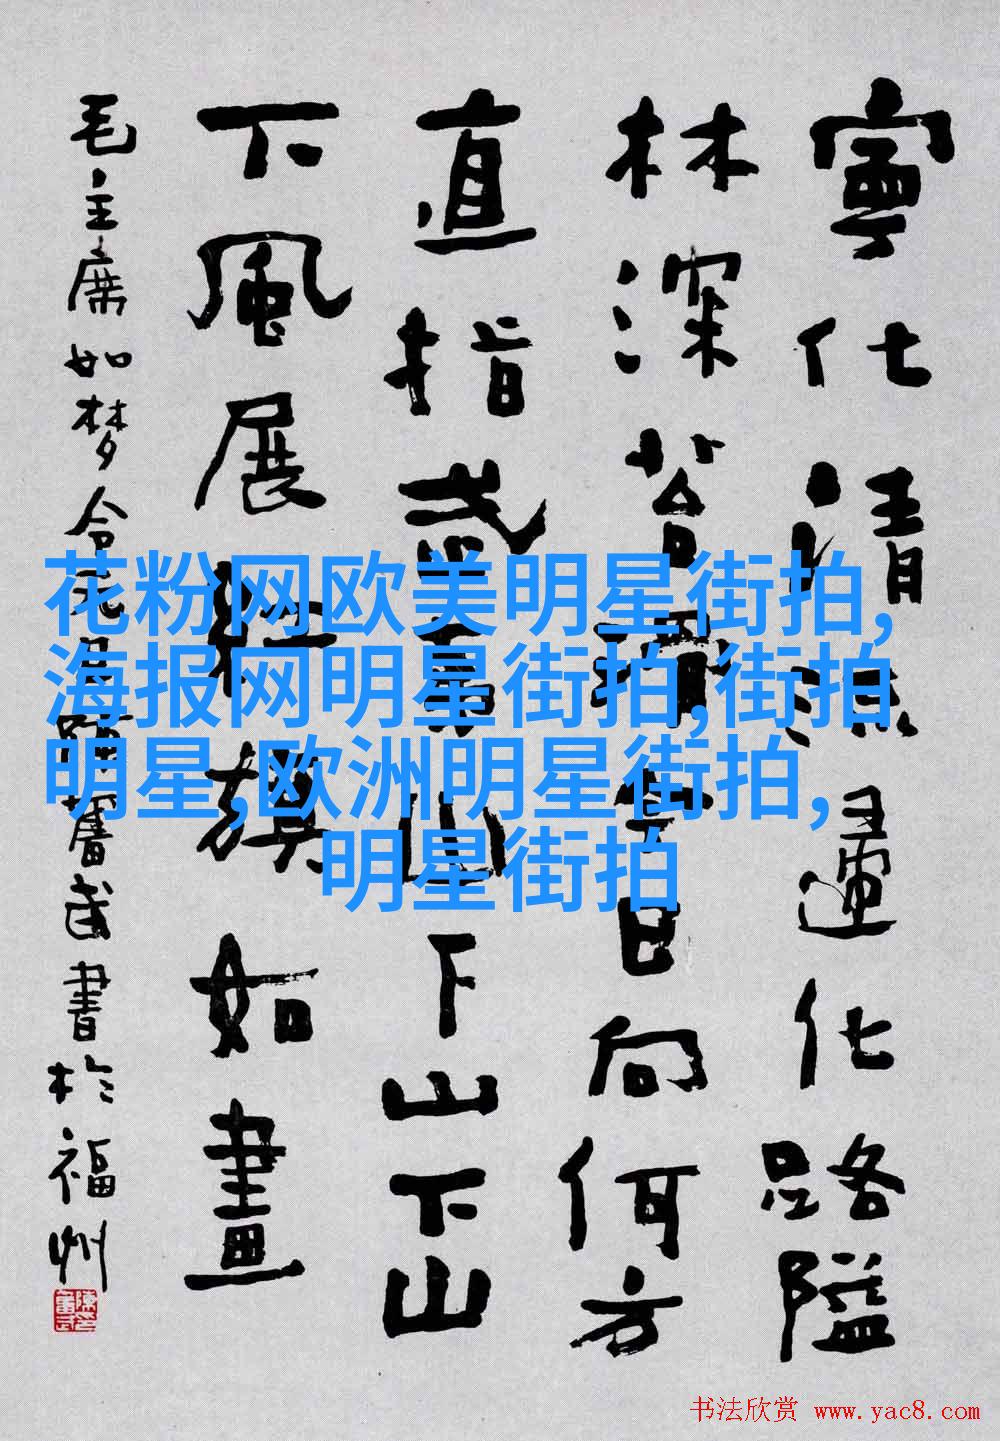 寧化清流歸化路隘
林深苔滑今日向何方
直指武夷山下山下山
下風展紅旗如畫
毛主席如梦令元旦陳奮武書於福州
花粉网欧美明星街拍,
海报网明星街拍,街拍
明星,欧洲明星街拍,
明星街拍
书法欣赏 www.yac8.com